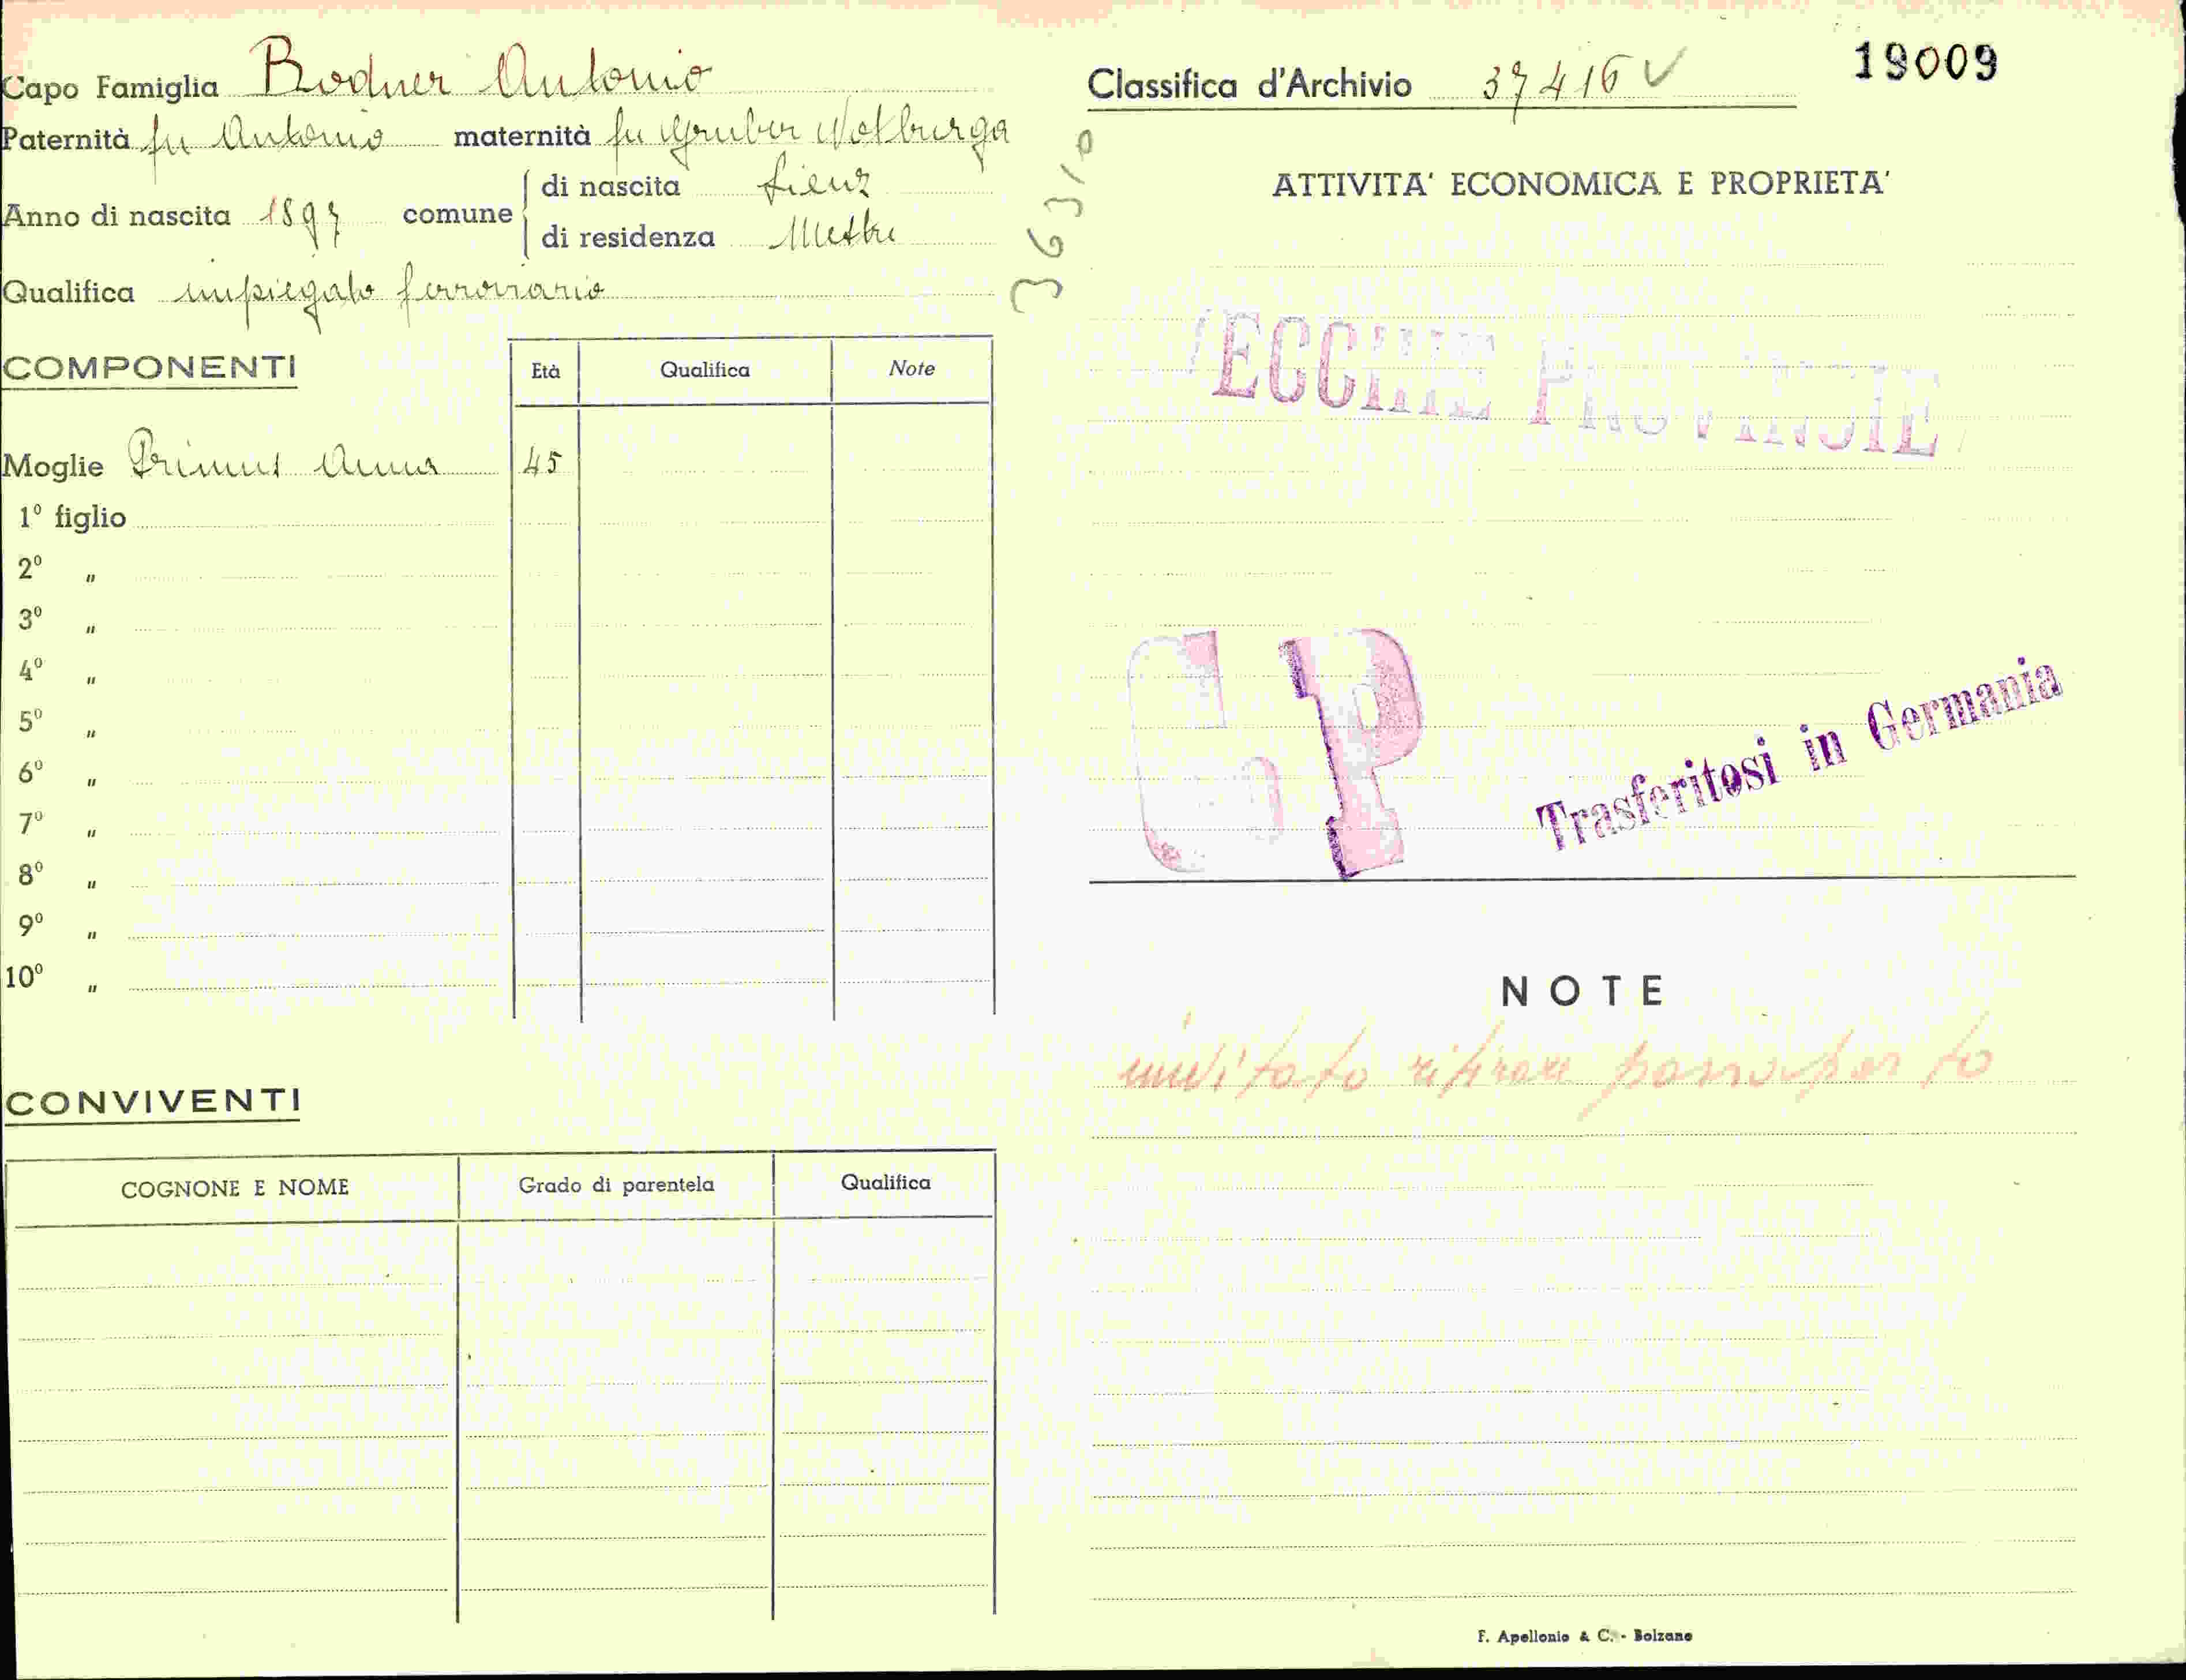 Capo Famiglia Bodner Antonio
Paternità fu Antonio maternità fu Gruber Notburga
Anno di nascita 1897 comune di nascita Lienz
di residenza Mestre
Qualifica impiegato ferroviario
COMPONENTI Età Qualifica Note
Moglie Primus Anna 45
1º figlio
2º "
3º "
4º "
5º "
6º "
7º "
8º "
9º "
10º "
CONVIVENTI
COGNONE E NOME Grado di parentela Qualifica
36310
Classifica d'Archivio 37416 V
19009
ATTIVITA' ECONOMICA E PROPRIETA'
VECCHIE PROVINCIE
GP
Trasferitosi in Germania
NOTE
invitato ritirare passaporto
F. Apollonio & C. - Bolzano